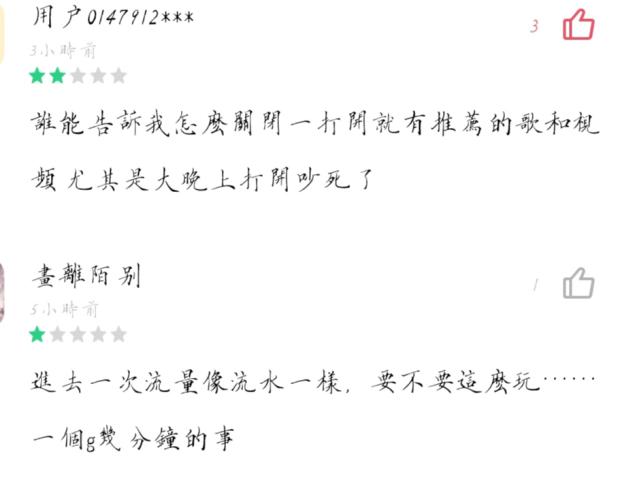 用户0147912***
3
3小時前
誰能告訴我怎麼關閉一打開就有推薦的歌和視
頻尤其是大晚上打開吵死了
畫離陌别
1
5小時前
進去一次流量像流水一樣，要不要這麼玩……
一個g幾分鐘的事